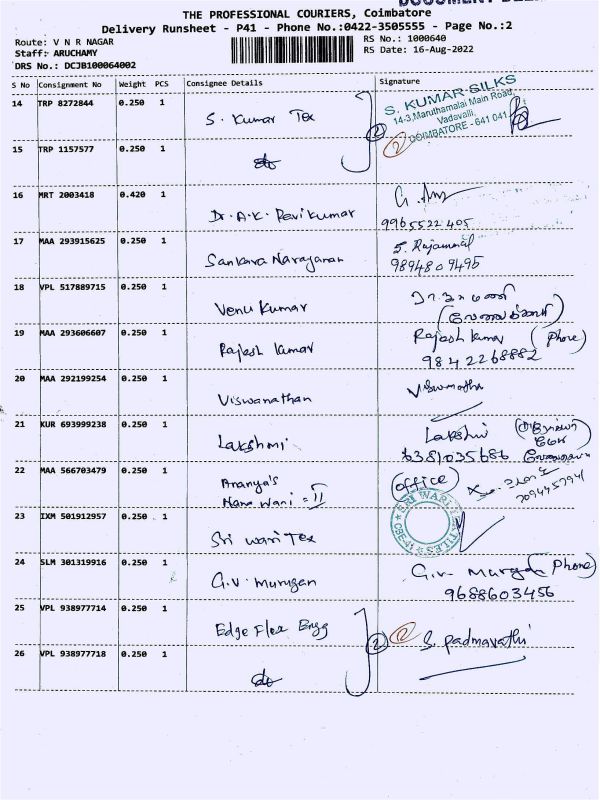 THE PROFESSIONAL COURIERS, Coimbatore
Delivery Runsheet - P41 - Phone No.:0422-3505555 - Page No.:2
Route: V N R NAGAR
Staff: ARUCHAMY
DRS No.: DCJB100064002
RS No.: 1000640
RS Date: 16-Aug-2022
S No Consignment No Weight PCS Consignee Details Signature
14 TRP 8272844 0.250 1 S. Kumar Tex
S. KUMAR SILKS
14-3, Maruthamalai Main Road,
Vadavalli,
COIMBATORE - 641 041.
2 2
15 TRP 1157577 0.250 1 do
16 MRT 2003418 0.420 1 Dr. A.K. Ravikumar
9965522405
17 MAA 293915625 0.250 1 Sankara Narayanan
S. Rajammal
9894809495
18 VPL 517889715 0.250 1 Venu Kumar
19 MAA 293606607 0.250 1 Rajesh Kumar
Rajesh Kumar (Phone)
9842268882
20 MAA 292199254 0.250 1 Viswanathan
Viswanathan
21 KUR 693999238 0.250 1 Lakshmi
Lakshmi
6381035686
22 MAA 566703479 0.250 1 Ananya's
Nana Wani = II
(office)
23 IXM 501912957 0.250 1 Sri wari Tex
SRI WARI TEXTILES
CBE-41
24 SLM 301319916 0.250 1 G.V. Murugan
G.V. Murgan (Phone)
9688603456
25 VPL 938977714 0.250 1 Edge Flex Engg
2 2 S. Padmavathi
26 VPL 938977718 0.250 1 do